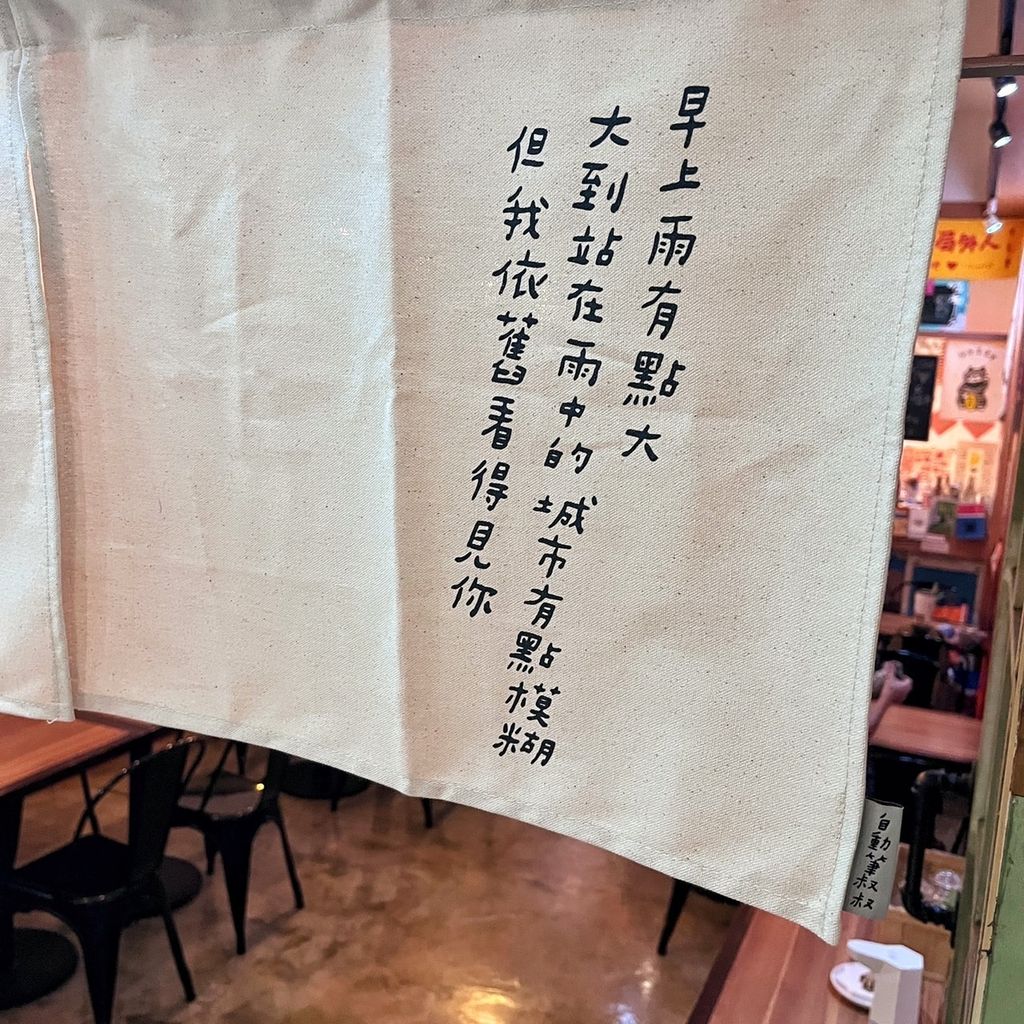 早上雨有點大
大到站在雨中的城市有點模糊
但我依舊看得見你
自動筆叔叔
局外人